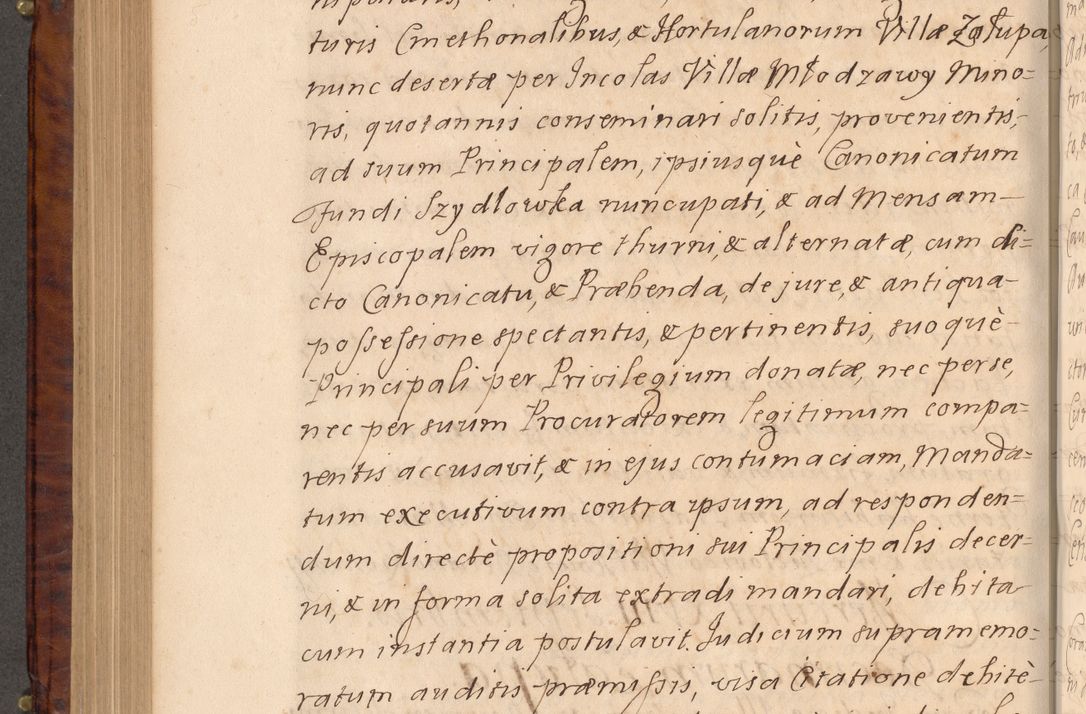 turis Cmethonalibus, & Hortulanorum Villæ Zalupa,
nunc desertæ per Incolas Villæ Młodzawy Mino=
ris, quotannis conseminari solitis, provenientis,
ad suum Principalem, ipsiusquè Canonicatum
fundi Szydlowka nuncupati, & ad Mensam
Episcopalem vigore thurni, & alternatæ, cum di=
cto Canonicatu, & Præbenda, de jure, & antiqua
possessione spectantis, & pertinentis, suoquè
Principali per Privilegium donatæ, nec per se,
nec per suum Procuratorem legitimum compa=
rentis accusavit, & in ejus contumaciam, Manda=
tum executivum contra ipsum, ad responden=
dum directè propositioni sui Principalis decer=
ni, & in forma solita extradi mandari, debita
cum instantia postulavit. Judicium supramemo=
ratum auditis præmissis, visa Citatione debitè